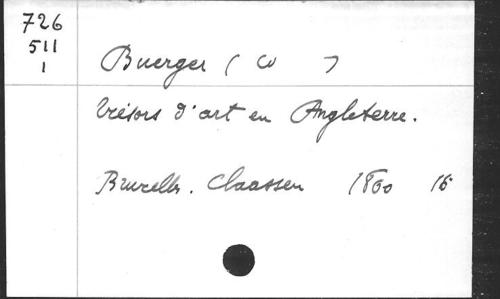 726
511
1
Buerger ( W )
Trésors d'art en Angleterre.
Bruxelles. Claassen 1860 16